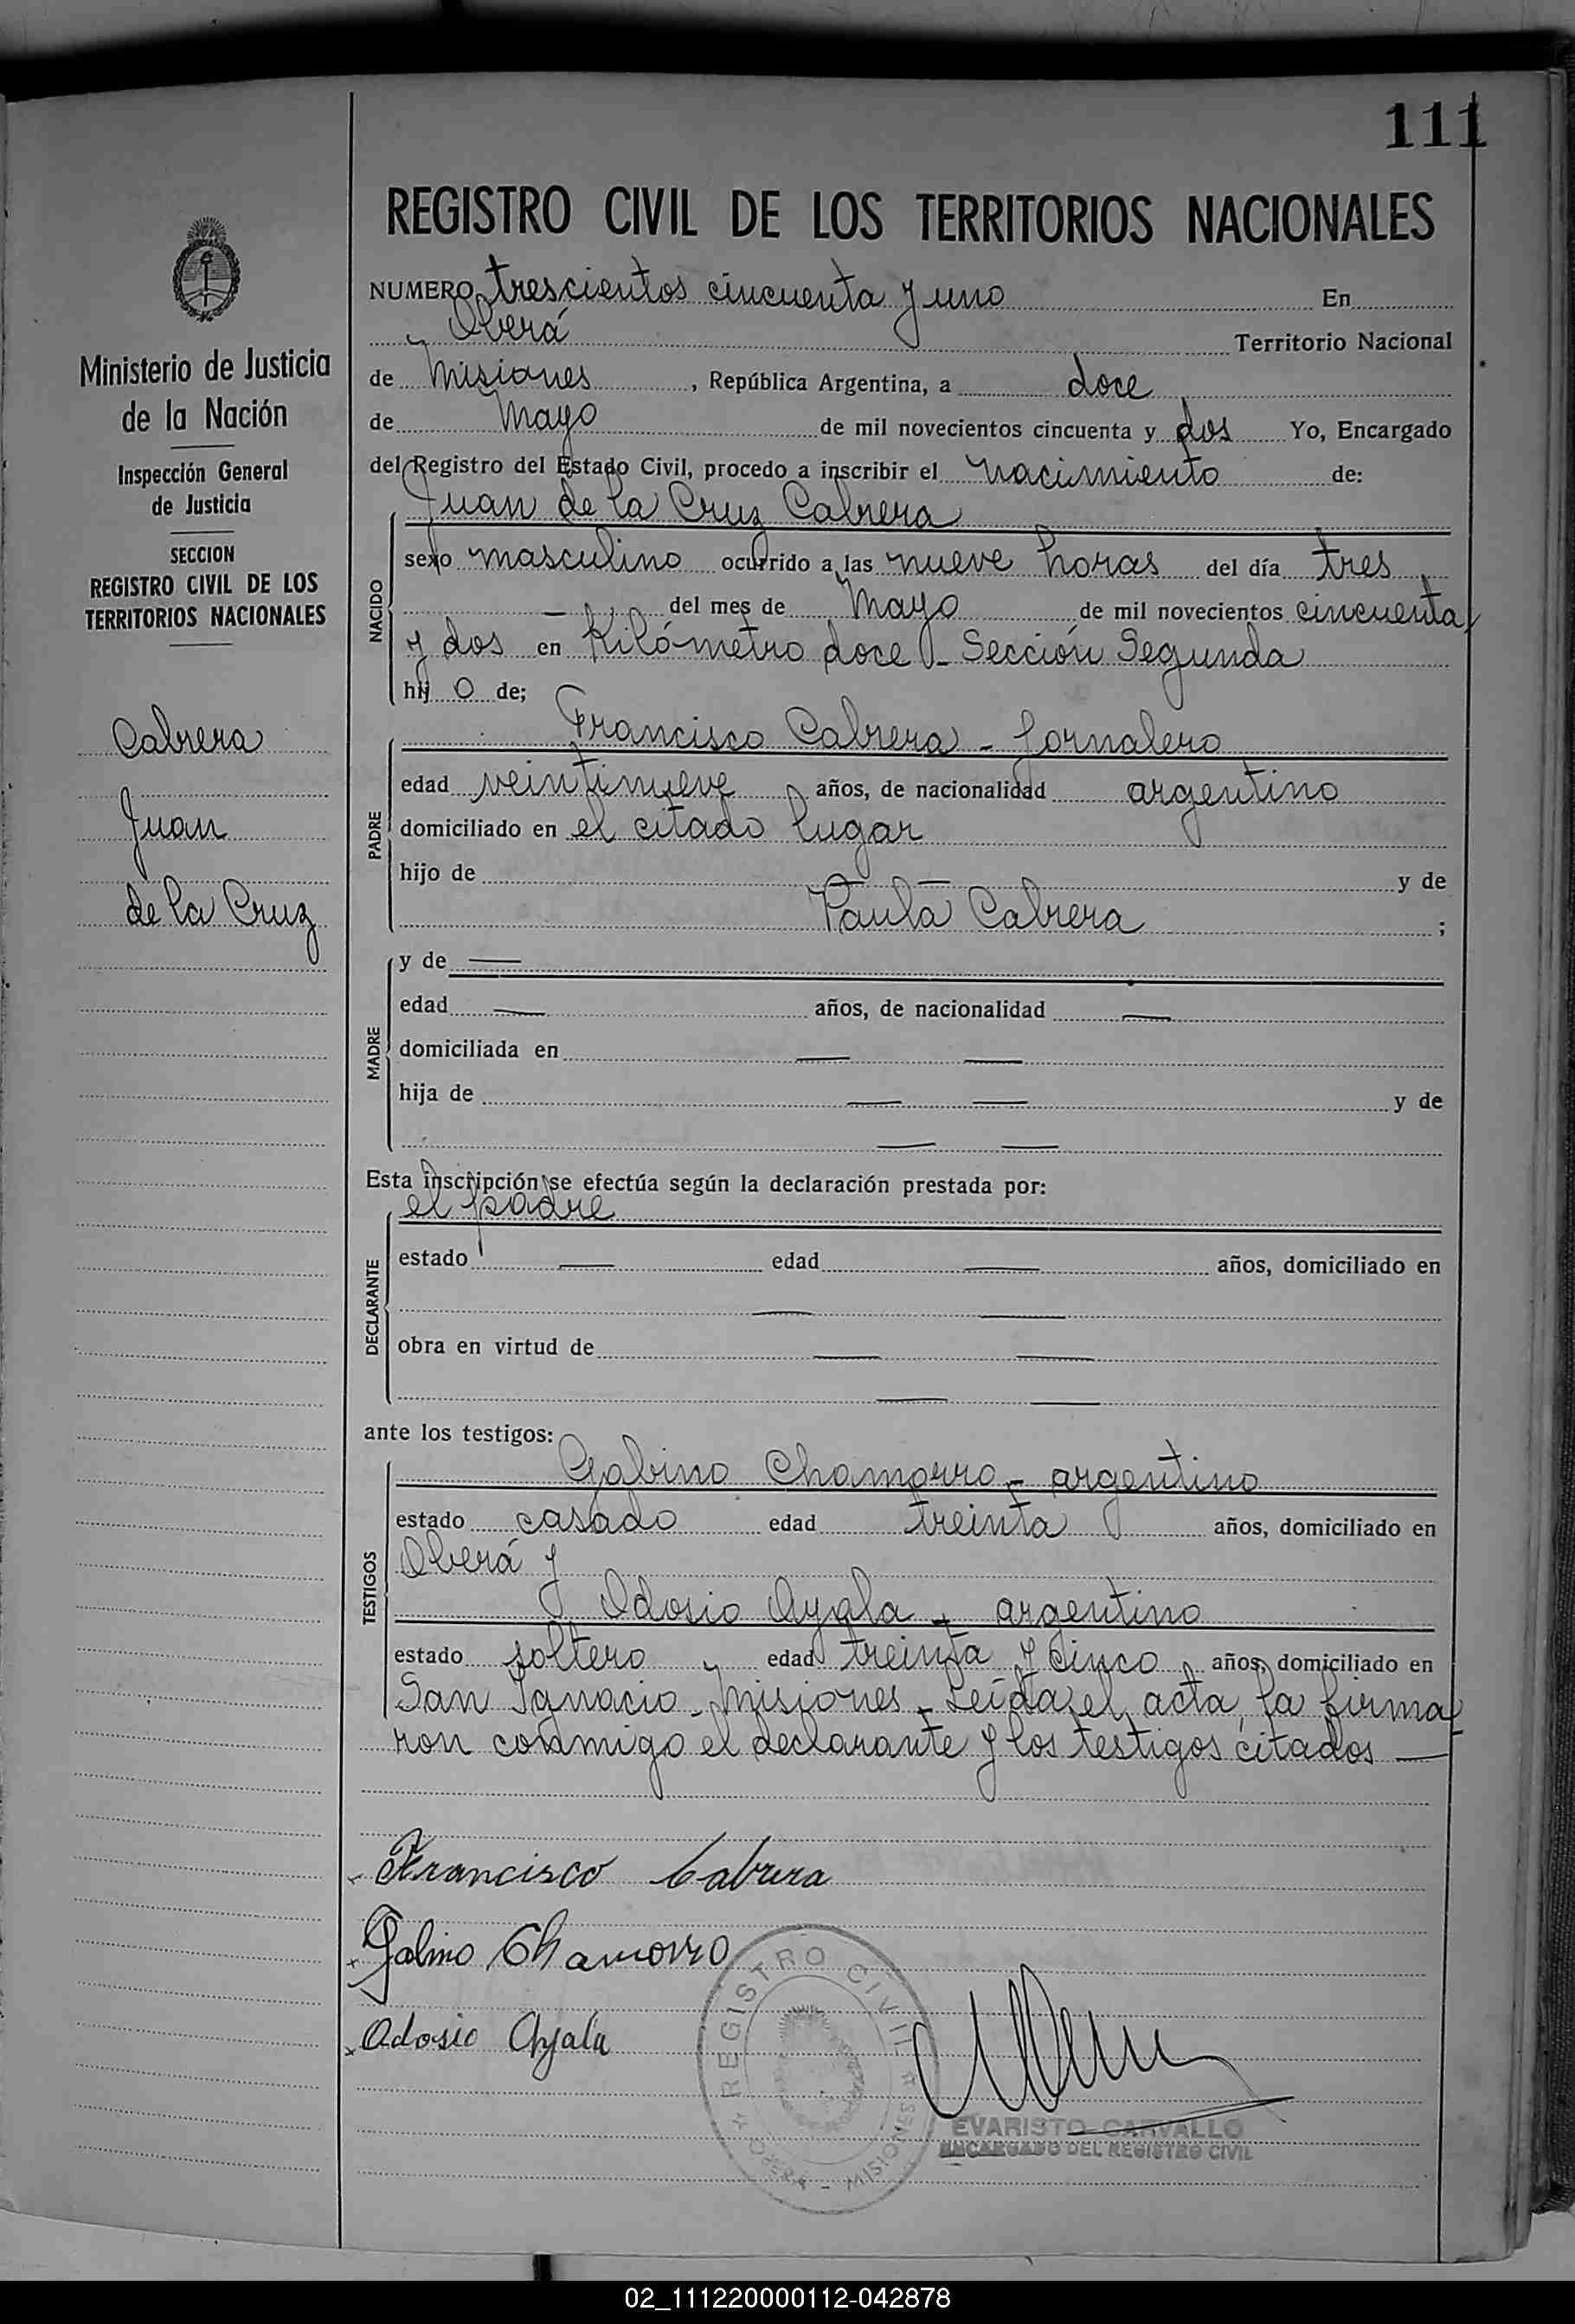 111
REGISTRO CIVIL DE LOS TERRITORIOS NACIONALES
NUMERO trescientos cincuenta y uno En
Oberá Territorio Nacional
de Misiones, República Argentina, a doce
de Mayo de mil novecientos cincuenta y dos Yo, Encargado
del Registro del Estado Civil, procedo a inscribir el nacimiento de:
Juan de la Cruz Cabrera
NACIDO
sexo masculino ocurrido a las nueve horas del día tres
— del mes de Mayo de mil novecientos cincuenta
y dos en Kilómetro doce - Sección Segunda
hij o de;
Francisco Cabrera - Jornalero
PADRE
edad veintinueve años, de nacionalidad argentino
domiciliado en el citado lugar
hijo de — — y de
Paula Cabrera ;
MADRE
y de —
edad — años, de nacionalidad —
domiciliada en — —
hija de — — y de
— —
Esta inscripción se efectúa según la declaración prestada por:
el padre
DECLARANTE
estado — edad — años, domiciliado en
— —
obra en virtud de — —
— —
ante los testigos:
Gabino Chamorro - argentino
TESTIGOS
estado casado edad treinta años, domiciliado en
Oberá y
Odosio Ayala - argentino
estado soltero edad treinta y cinco años, domiciliado en
San Ignacio - Misiones - Leída el acta, la firma
ron conmigo el declarante y los testigos citados —
Francisco Cabrera
Galino Chamorro
Odosio Ayala
REGISTRO CIVIL
OBERA - MISIONES
EVARISTO CARVALLO
ENCARGADO DEL REGISTRO CIVIL
Ministerio de Justicia
de la Nación
Inspección General
de Justicia
SECCION
REGISTRO CIVIL DE LOS
TERRITORIOS NACIONALES
Cabrera
Juan
de la Cruz
02_111220000112-042878